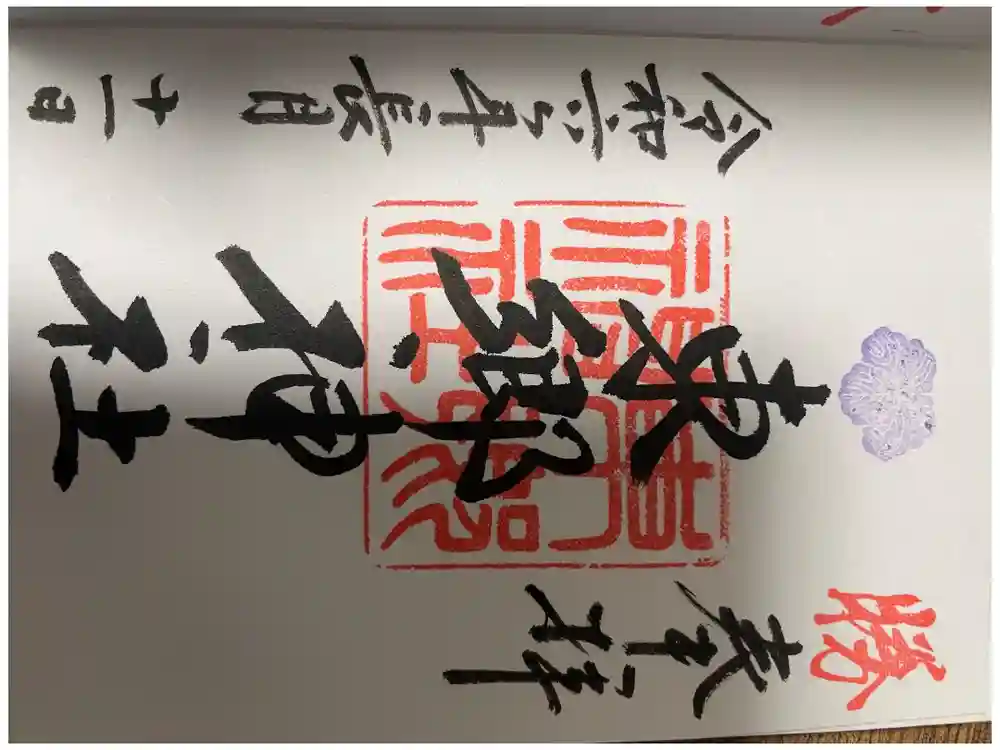 勝
奉拝
東郷神社
令和六年長月十一日